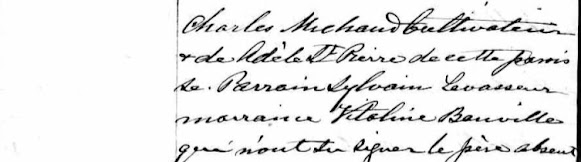 Charles Michaud Cultivateur
& de Adèle St Pierre de cette parois
se. Parrain Sylvain Levasseur
marraine Vitaline Banville
qui n'ont su signer le père absent